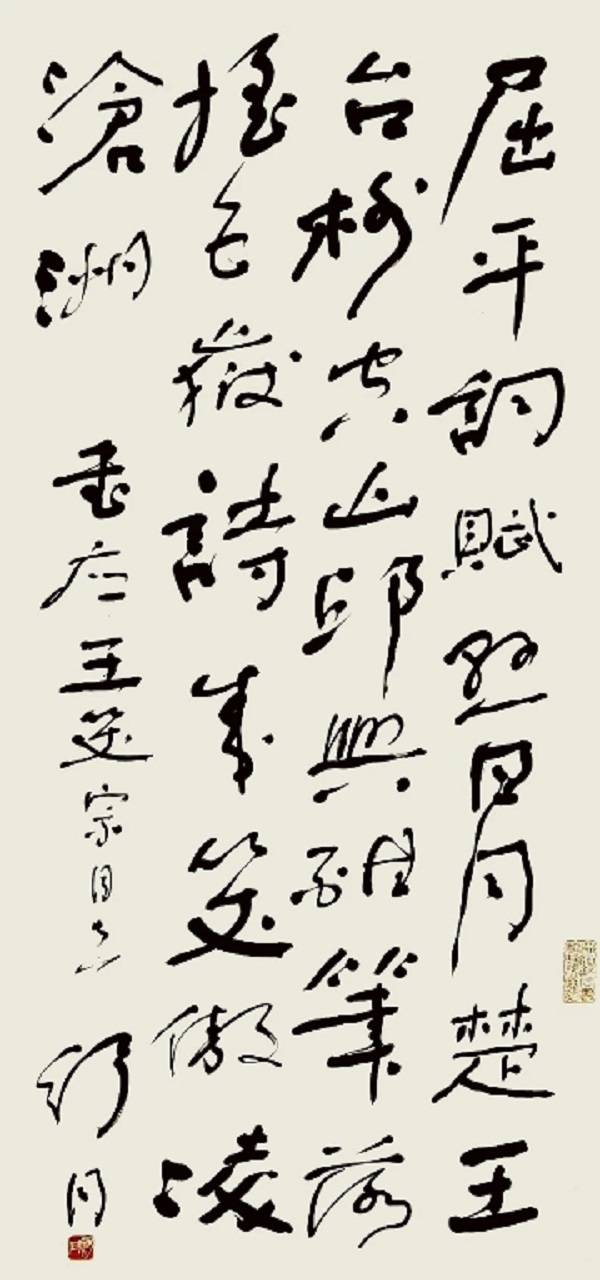 屈平詞賦懸日月楚王
台榭空山邱興酣筆落
搖五嶽詩成笑傲凌
滄洲 書应王笑宗同志 舒同